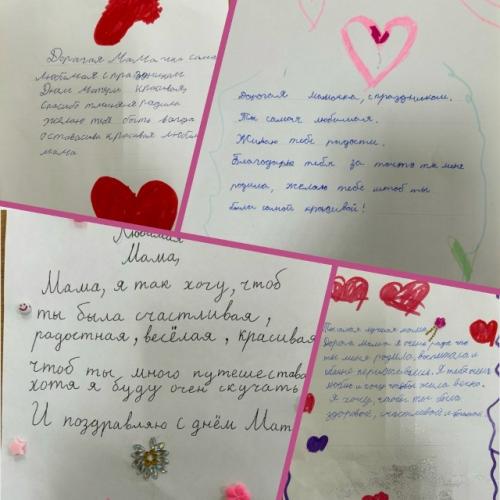 Дорогая Мама ты сама
любимая с праздником
Днем матери красивая
спасибо
желаю тебе быть всегда
красивая любим
мама
Дорогая мамочка, с праздником.
Ты самая любимая.
Желаю тебе радости.
Благодарю тебя за то что ты меня
родила, желаю тебе чтоб ты
была самой красивой!
Любимая
Мама,
Мама, я так хочу, чтоб
ты была счастливая,
радостная, весёлая, красивая
чтоб ты много путешества
хотя я буду очен скучать
И поздравляю с днём Мат
Ты самая лучшая мама
Дорогая мама я очень рада что
ты меня родила, воспитала и
меня Я тебя очень
люблю и хочу чтобы жила вечно.
Я хочу, чтобы ты была
здоровой, счастливой и